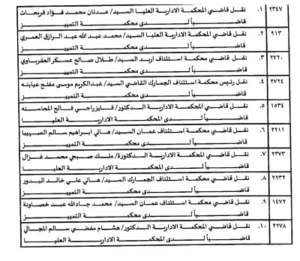 ١. ٢٣٤٧ نقل قاضي المحكمة الادارية العليا السيد/ عدنان محمد فؤاد فريحات
قاضياً لدى محكمة التمييز
٢. ٩١٣ نقل قاضي المحكمة الادارية العليا السيد/ محمد عبد الله عبد الرزاق العمري
قاضياً لدى محكمة التمييز
٣. ٢٧٢٠ نقل قاضي محكمة استئناف اربد السيد/ طلال صالح عسكر العقرباوي
قاضياً لدى محكمة التمييز
٤. ٢٧٢٤ نقل رئيس محكمة استئناف الجمارك القاضي السيد/ عبدالكريم موسى مفلح عبابنه
قاضياً لدى محكمة التمييز
٥. ١٥٣٤ نقل قاضي المحكمة الادارية الدكتور/ فايز راجي فالح المحاسنه
قاضياً لدى محكمة التمييز
٦. ٢٢١١ نقل قاضي محكمة استئناف عمان السيد/ هاني ابراهيم سالم
قاضياً لدى محكمة التمييز
٧. ٢٣٧٣ نقل قاضي المحكمة الادارية الدكتورة/ ملك سميح محمد غزال
قاضياً لدى محكمة التمييز
٨. ٢٢٣٢ نقل قاضي محكمة استئناف الجمارك السيد/ هاني علي خالد البدور
قاضياً لدى محكمة التمييز
٩. ١٤٧٢ نقل قاضي محكمة استئناف عمان السيد/ محمد جادالله عبد خصاونة
قاضياً لدى المحكمة الادارية العليا
١٠. ٢٢٧٨ نقل قاضي المحكمة الادارية الدكتور/ هشام مفضي سالم المجالي
قاضياً لدى المحكمة الادارية العليا